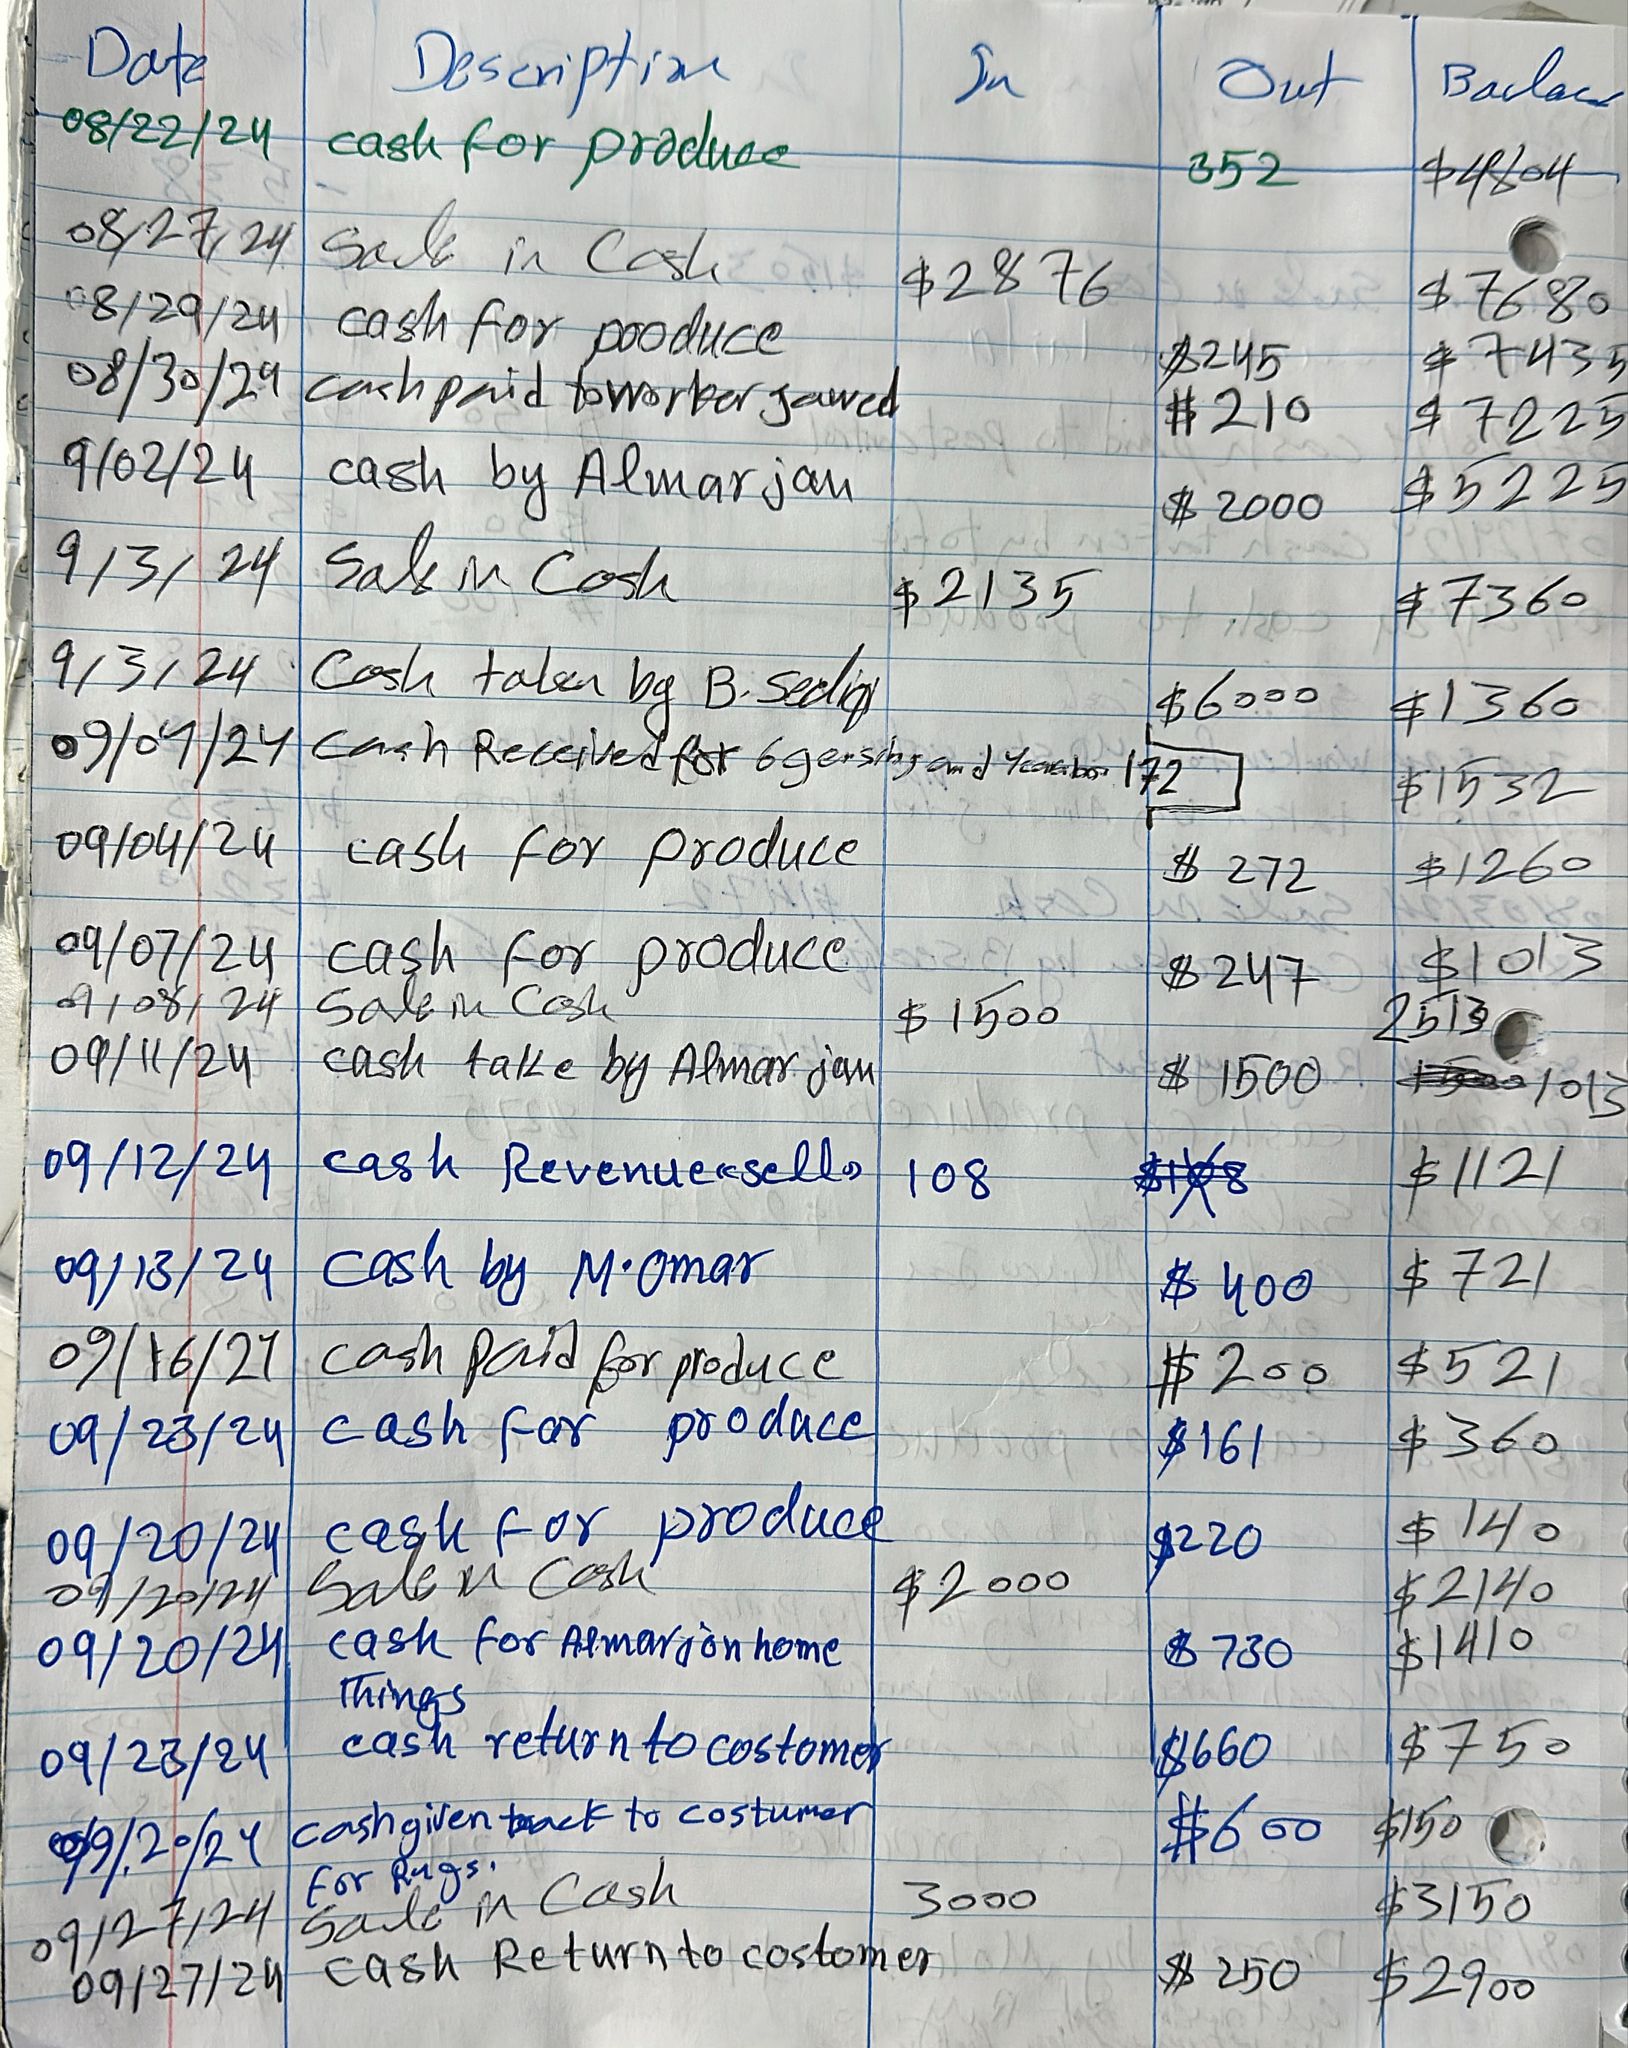 Date Description In Out Baclace
08/22/24 cash for produce 352 $4804
08/27/24 Sale in Cash $2876 $7680
08/29/24 cash for pooduce $245 $7435
08/30/24 cash paid to worker jawed $210 $7225
9/02/24 cash by Almarjan $2000 $5225
9/3/24 Sale in Cash $2135 $7360
9/3/24 Cash taken by B. Sediqi $6000 $1360
09/04/24 Cash Received for 6 and 172 $1532
09/04/24 cash for produce $272 $1260
09/07/24 cash for produce $247 $1013
09/08/24 Sale in Cash $1500 2513
09/11/24 cash take by Almarjan $1500 1013
09/12/24 cash Revenue «sell» 108 $108 $1121
09/13/24 cash by M.omar $400 $721
09/16/24 cash paid for produce $200 $521
09/23/24 cash for produce $161 $360
09/20/24 cash for produce $220 $140
09/20/24 Sale in Cash $2000 $2140
09/20/24 cash for Almarjan home $730 $1410
Things
09/23/24 cash return to costomer $660 $750
09/20/24 cash given back to costumer $600 $150
for Rugs.
09/27/24 Sale in Cash 3000 $3150
09/27/24 cash Return to costomer $250 $2900